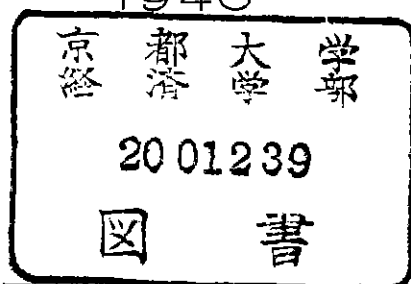 京都大学
経済学部
2001239
図書